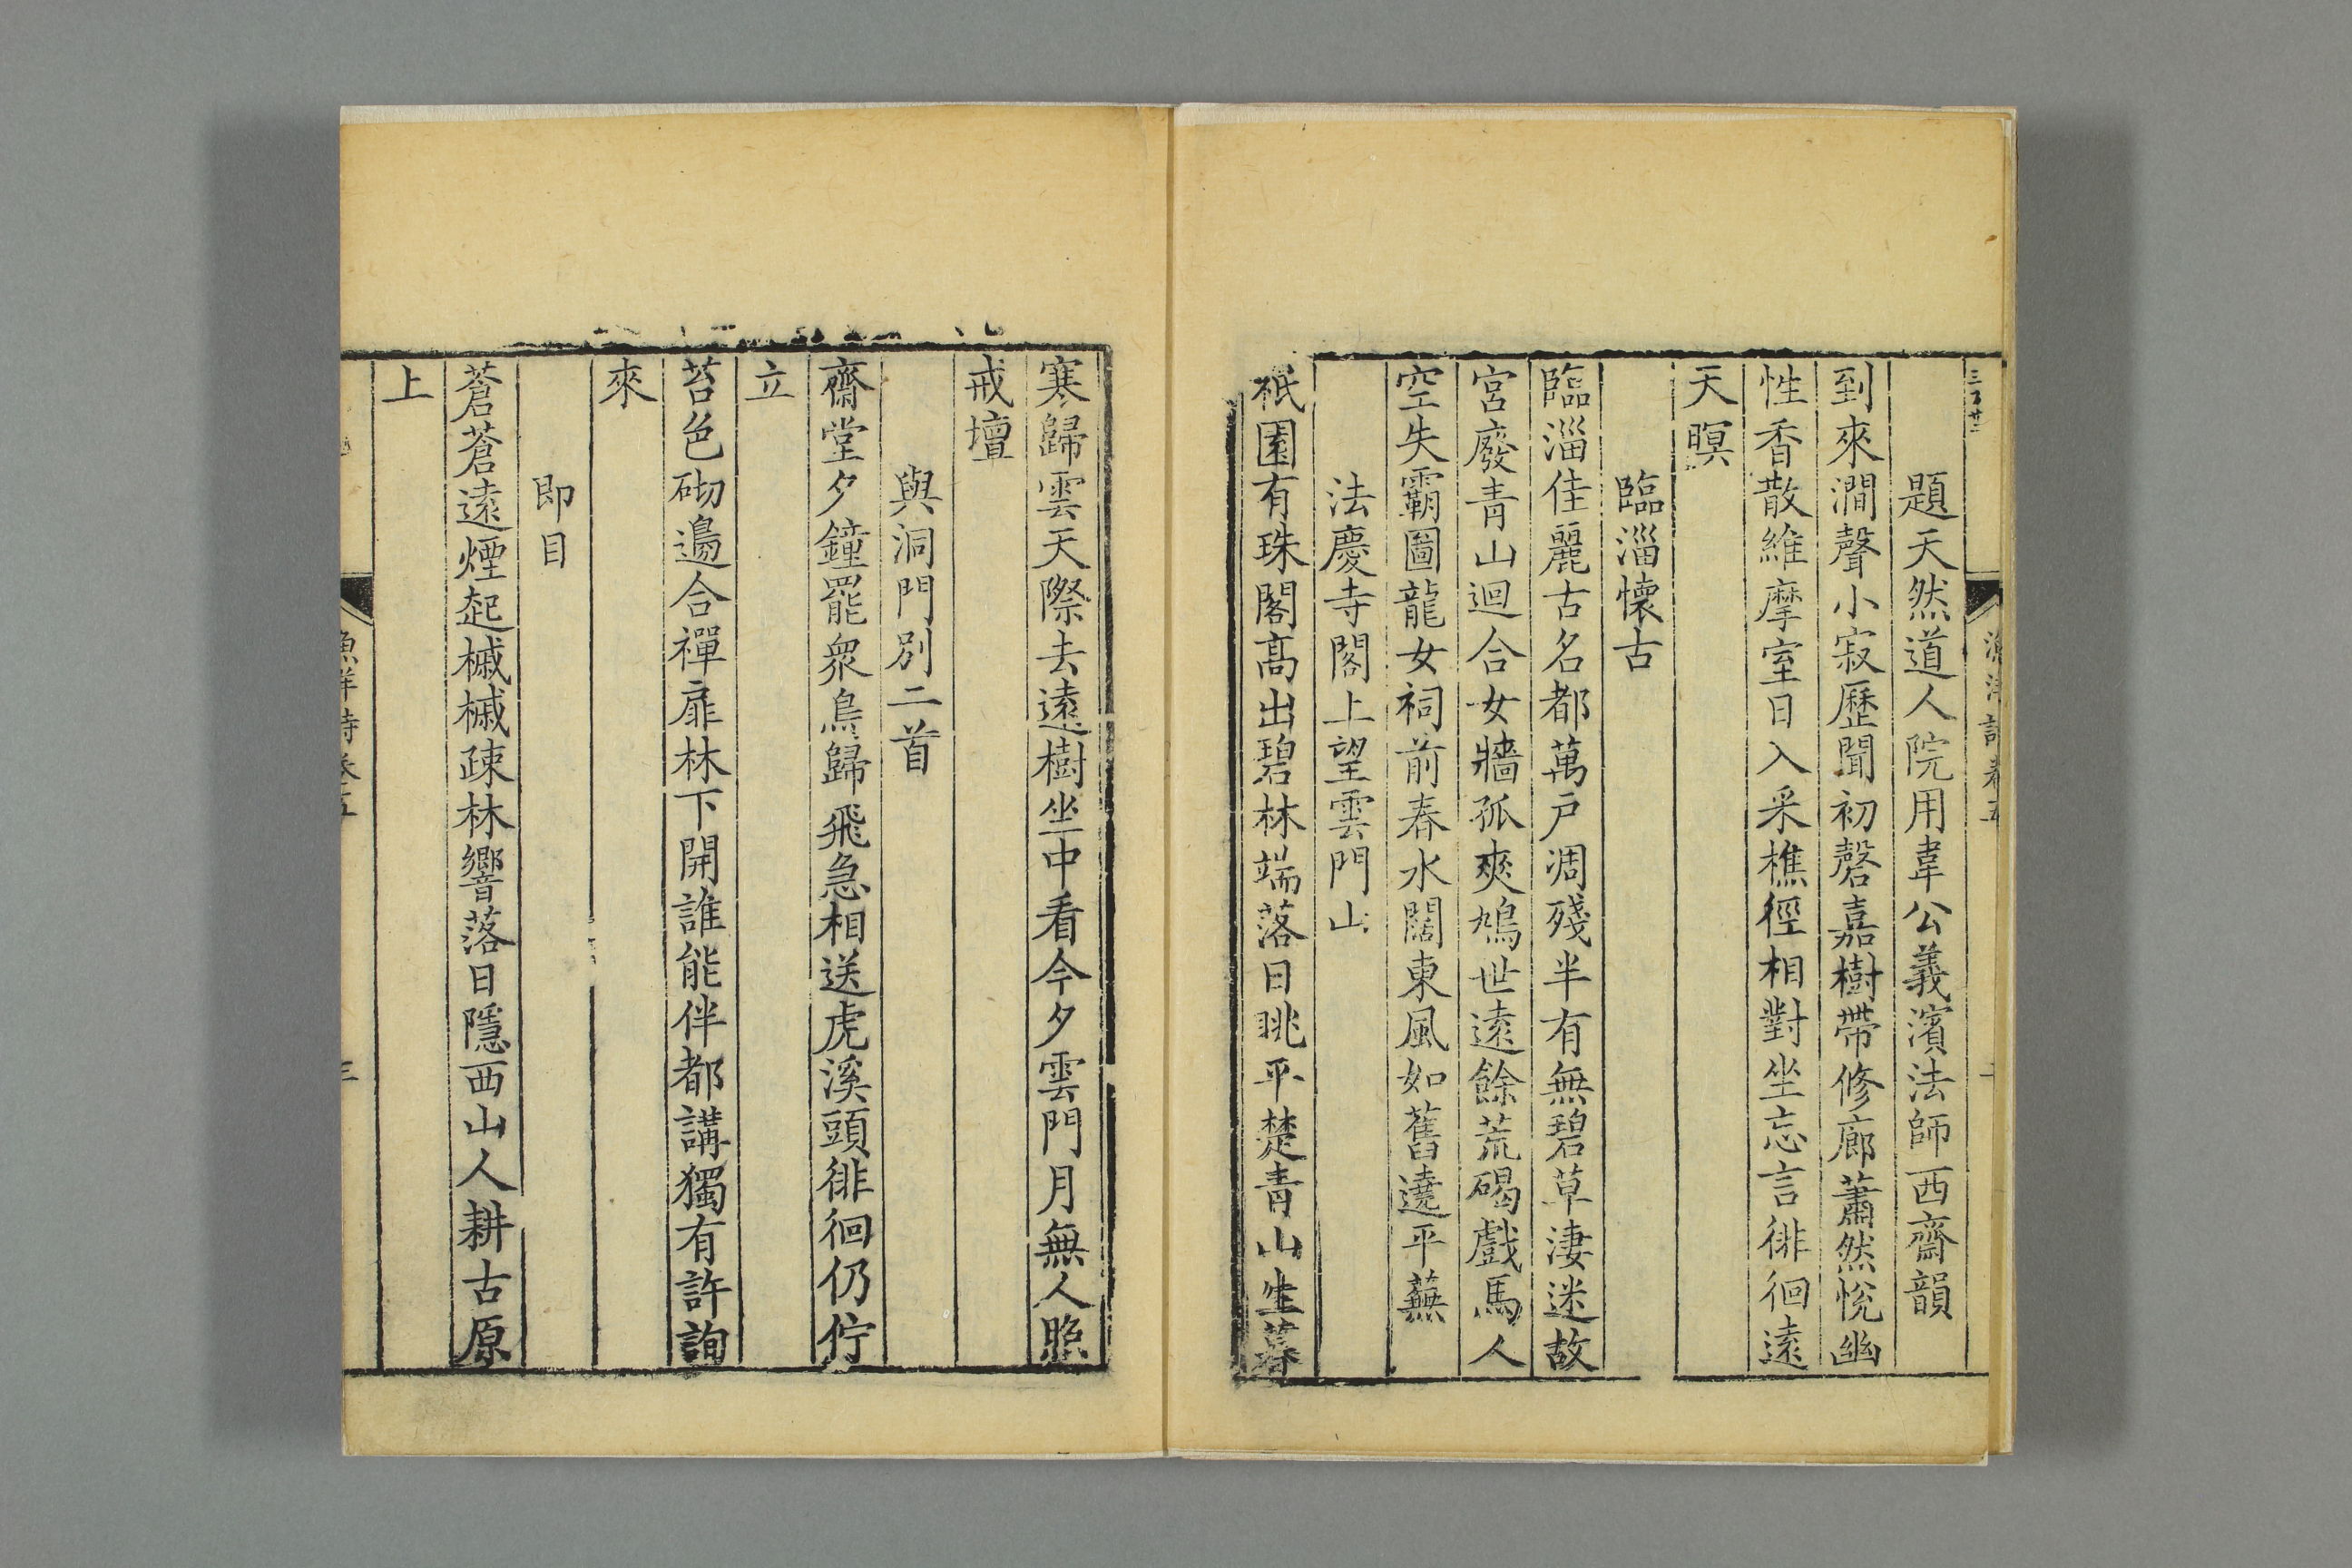 題天然道人院用韋公義濱法師西齋韻
到來澗聲小寂歷聞初磬嘉樹帶修廊蕭然悅幽
性香散維摩室日入采樵徑相對坐忘言徘徊遠
天暝
臨淄懷古
臨淄佳麗古名都萬戶凋殘半有無碧草淒迷故
宮廢青山迴合女牆孤爽鳩世遠餘荒碣戲馬人
空失霸圖龍女祠前春水闊東風如舊遶平蕪
法慶寺閣上望雲門山
祇園有珠閣高出碧林端落日眺平楚青山生暮
寒歸雲天際去遠樹坐中看今夕雲門月無人照
戒壇
與洞門別二首
齋堂夕鐘罷衆鳥歸飛急相送虎溪頭徘徊仍佇
立
苔色砌邊合禪扉林下開誰能伴都講獨有許詢
來
即目
蒼蒼遠煙起槭槭疎林響落日隱西山人耕古原
上
漁洋詩卷五
三